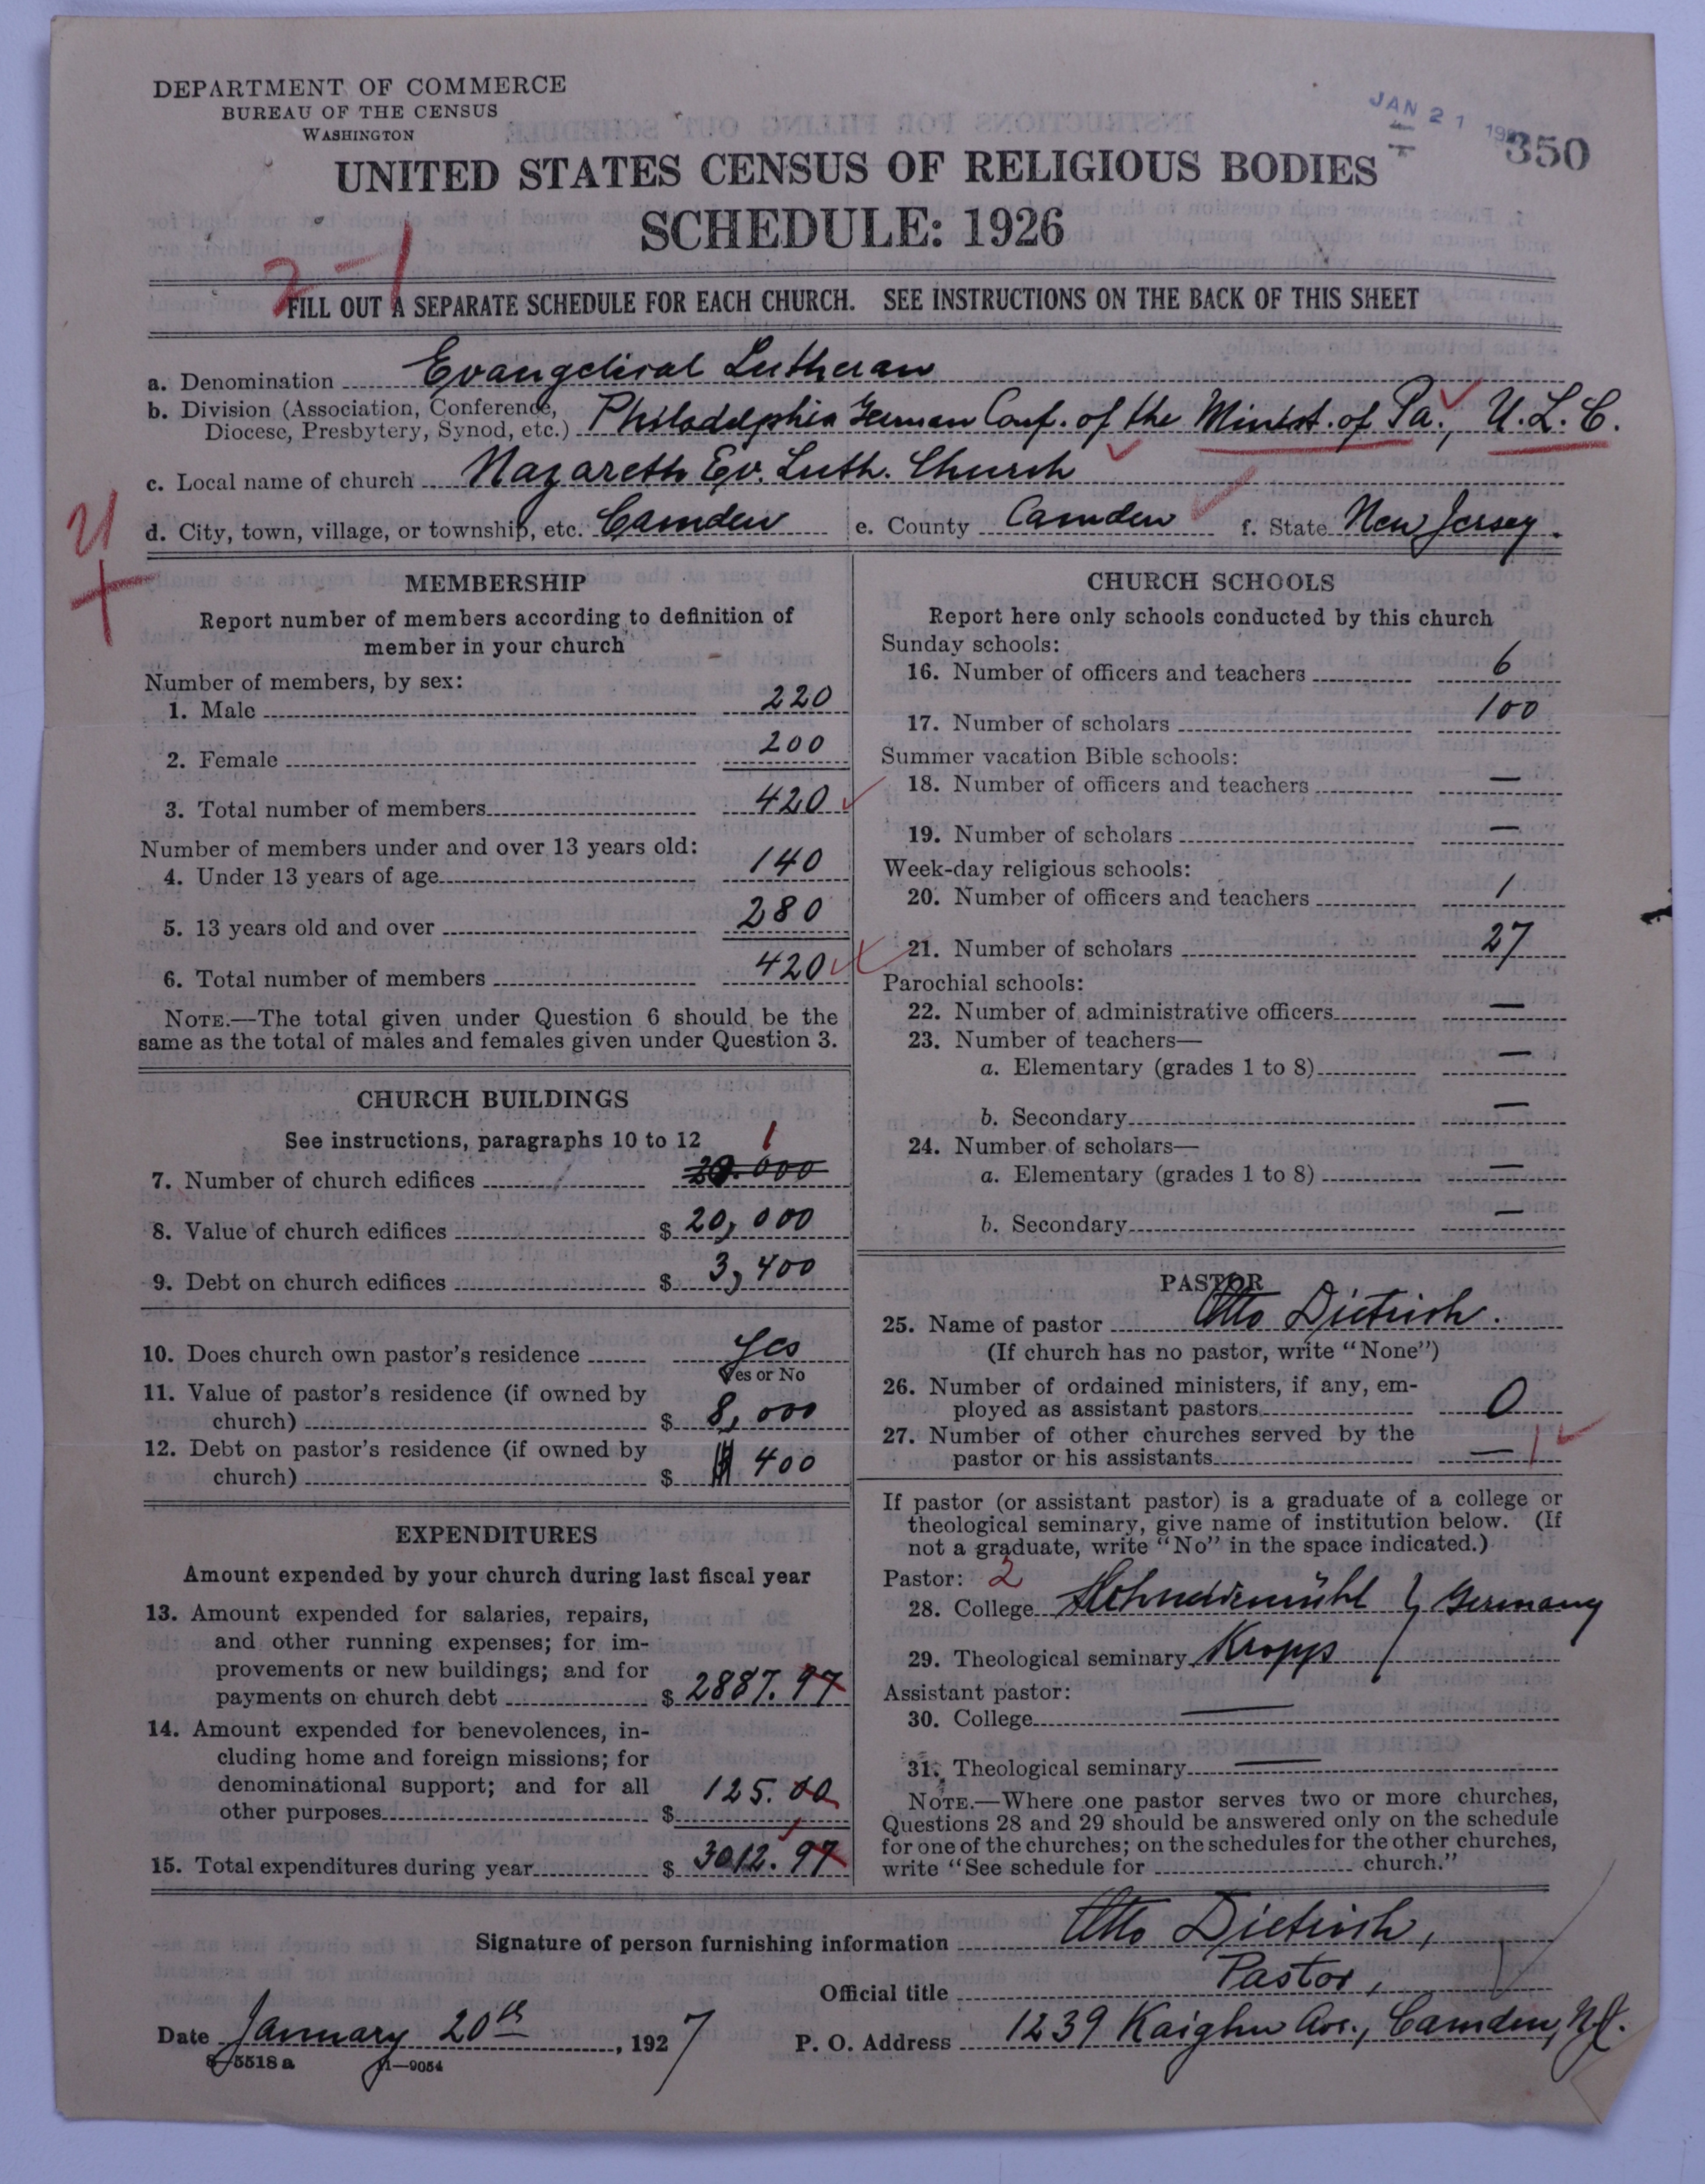 DEPARTMENT OF COMMERCE
BUREAU OF THE CENSUS
WASHINGTON
JAN 21
350
UNITED STATES CENSUS OF RELIGIOUS BODIES
SCHEDULE: 1926
2-1
FILL OUT A SEPARATE SCHEDULE FOR EACH CHURCH. SEE INSTRUCTIONS ON THE BACK OF THIS SHEET
a. Denomination Evangelical Lutheran
b. Division (Association, Conference, Diocese, Presbytery, Synod, etc.) Philadelphia German Conf. of the Minist. of Pa., U.L.C.
c. Local name of church Nazareth Ev. Luth. Church
d. City, town, village, or township, etc. Camden e. County Camden f. State New Jersey.
MEMBERSHIP
Report number of members according to definition of
member in your church
Number of members, by sex:
1. Male 220
2. Female 200
3. Total number of members 420
Number of members under and over 13 years old:
4. Under 13 years of age 140
5. 13 years old and over 280
6. Total number of members 420
NOTE.—The total given under Question 6 should be the
same as the total of males and females given under Question 3.
CHURCH BUILDINGS
See instructions, paragraphs 10 to 12
1
7. Number of church edifices 20.000
8. Value of church edifices $ 20,000
9. Debt on church edifices $ 3,400
10. Does church own pastor's residence Yes
Yes or No
11. Value of pastor's residence (if owned by
church) $ 8,000
12. Debt on pastor's residence (if owned by
church) $ 400
EXPENDITURES
Amount expended by your church during last fiscal year
13. Amount expended for salaries, repairs,
and other running expenses; for im-
provements or new buildings; and for
payments on church debt $ 2887.97
14. Amount expended for benevolences, in-
cluding home and foreign missions; for
denominational support; and for all
other purposes $ 125.00
15. Total expenditures during year $ 3012.97
CHURCH SCHOOLS
Report here only schools conducted by this church
Sunday schools:
16. Number of officers and teachers 6
17. Number of scholars 100
Summer vacation Bible schools:
18. Number of officers and teachers —
19. Number of scholars —
Week-day religious schools:
20. Number of officers and teachers 1
21. Number of scholars 27
Parochial schools:
22. Number of administrative officers —
23. Number of teachers—
a. Elementary (grades 1 to 8) —
b. Secondary —
24. Number of scholars—
a. Elementary (grades 1 to 8) —
b. Secondary —
PASTOR
25. Name of pastor Otto Dietrich.
(If church has no pastor, write "None")
26. Number of ordained ministers, if any, em-
ployed as assistant pastors 0
27. Number of other churches served by the
pastor or his assistants — 1
If pastor (or assistant pastor) is a graduate of a college or
theological seminary, give name of institution below. (If
not a graduate, write "No" in the space indicated.)
Pastor: 2
28. College Germany
29. Theological seminary Kropp
Assistant pastor:
30. College —
31. Theological seminary —
NOTE.—Where one pastor serves two or more churches,
Questions 28 and 29 should be answered only on the schedule
for one of the churches; on the schedules for the other churches,
write "See schedule for church."
Signature of person furnishing information Otto Dietrich,
Official title Pastor,
Date January 20th, 1927 P. O. Address 1239 Kaighn Ave., Camden, N.J.
8—5518 a 11—9054